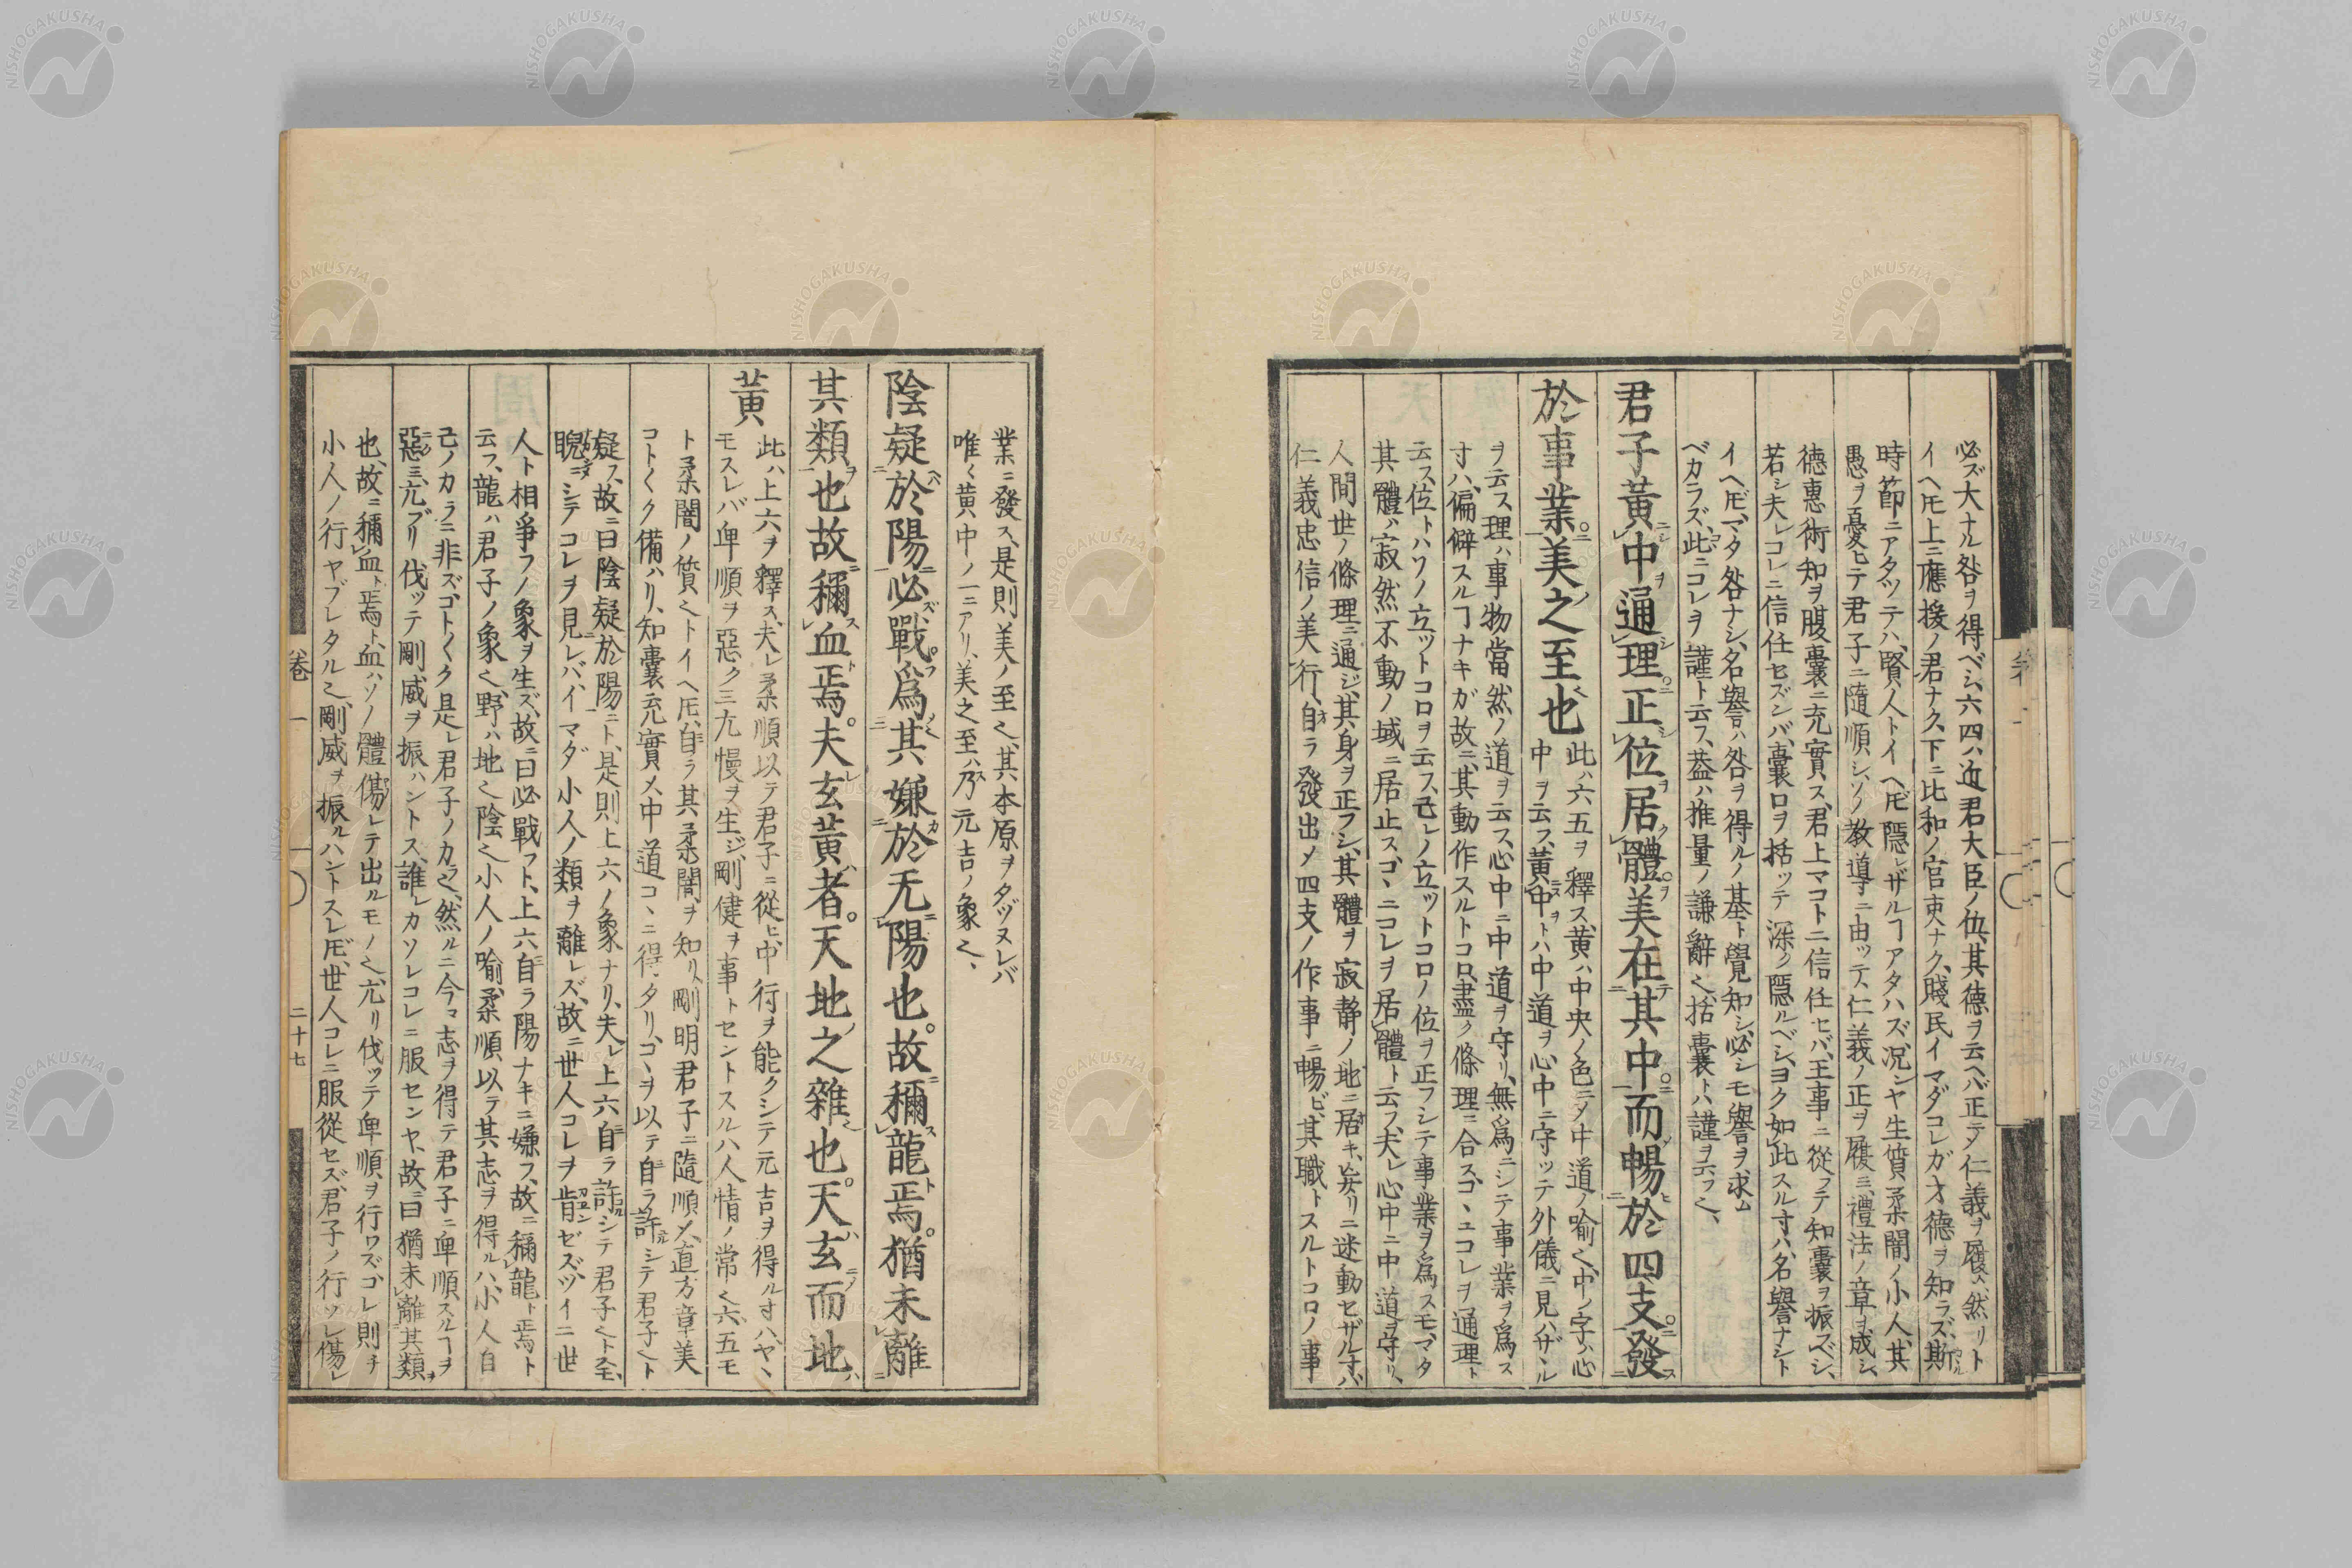 必ズ大ナル咎ヲ得ベシ、六四ハ近君大臣ノ位、其德ヲ云ヘバ正テ仁義ヲ履ム、然リト
イヘ𪜈上ニ應援ノ君ナク、下ニ比和ノ官吏ナク、賤民イマダコレガ才德ヲ知ラズ、斯ル
時節ニアタツテハ、賢人トイヘ𪜈隱レザルヿアタハズ、况ンヤ生質柔闇ノ小人、其
愚ヲ憂ヒテ君子ニ隨順シ、ソノ教導ニ由ッテ、仁義ノ正ヲ履ミ、禮法ノ章ヲ成シ、
德惠術知ヲ腹囊ニ充實ス、君上マコトニ信任セバ、王事ニ從フテ知囊ヲ振ズベシ、
若シ夫レコレニ信任セズンバ、囊口ヲ括ッテ深ク隱ルベシ、ヨク如此スル寸ハ、名譽ナシト
イヘ𪜈、マタ咎ナシ、名譽ハ咎ヲ得ルノ基ト覺知シ、必シモ譽ヲ求ム
ベカラズ、此ニコレヲ謹ト云フ、葢ハ推量ノ謙辭也、括囊トハ謹ヲ云フ也、
君子黃中通理正位居體美在其中而暢於四支發
於事業美之至也
此ハ六五ヲ釋ス、黃ハ中央ノ色ニメ中道ノ喩也、中ノ字ハ心
中ヲ云フ、黃中トハ中道ヲ心中ニ守ッテ外儀ニ見ハザル
ヲ云ス、理ハ事物當然ノ道ヲ云ス、心中ニ中道ヲ守リ、無爲ニシテ事業ヲ爲ス
寸ハ、偏僻スルヿナキガ故ニ、其動作スルトコロ、盡ク條理ニ合ス、コヽニコレヲ通理ト
云ス、位トハソノ立ットコロヲ云ス、己レノ立ットコロノ位ヲ正フシテ事業ヲ爲スモ、マタ
其體ハ寂然不動ノ域ニ居止ス、コヽニコレヲ居體ト云フ、夫レ心中ニ中道ヲ守リ、
人間世ノ條理ニ通ジ、其身ヲ正フシ、其體ヲ寂静ノ地ニ居キ、妄リニ迷動セザル寸ハ
仁義忠信ノ美行、自ラ發出メ四支ノ作事ニ暢ビ、其職トスルトコロノ事
業ニ發ス、是則美ノ至也、其本原ヲタヅヌレバ
唯〻黃中ノ一ニアリ、美之至ハ乃元吉ノ象也、
陰疑於陽必戰爲其嫌於无陽也故稱龍焉猶未離
其類也故稱血焉夫玄黃者天地之雜也天玄而地
黃
此ハ上六ヲ釋ス、夫レ柔順以テ君子ニ從ヒ、中行ヲ能クシテ元吉ヲ得ル寸ハ、ヤヽ
モスレバ卑順ヲ惡ク三亢慢ヲ生ジ、剛健ヲ事トセントスルハ人情ノ常也、六五モ
ト柔闇ノ質也トイヘ𪜈、自ラ其柔闇ヲ知リ、剛明君子ニ隨順メ、直方章美
コト〱ク備ハリ、知囊充實メ、中道コヽニ得タリ、コヽヲ以テ自ラ許シテ君子也ト
疑ス、故ニ曰陰疑於陽ニト、是則上六ノ象ナリ、夫レ上六自ラ許シテ君子也ト至、
睨シテコレヲ見レバ、イマダ小人ノ類ヲ離レズ、故ニ世人コレヲ肯ゼズ、ツイニ世
人ト相爭フノ象ヲ生ズ、故ニ曰必戰フト、上六自ラ陽ナキニ嫌フ、故ニ稱龍ト焉ト
云フ、龍ハ君子ノ象也、野ハ地也陰也小人ノ喩、柔順以テ其志ヲ得ルハ、小人自
己ノカラニ非ズ、コト〱ク是レ君子ノカラ也、然ルニ今マ志ヲ得テ君子ニ卑順スルヿヲ
惡ミ、亢ブリ伐ッテ剛威ヲ振ハントス、誰レカソレコレニ服センヤ、故ニ曰猶未離其類ヲ
也、故ニ稱血ト焉ト、血ハソノ體傷レテ出ルモノ也、亢リ伐ッテ卑順ヲ行ワズ、コレ則チ
小人ノ行ヤブレタル也、剛威ヲ振ルハントスレ𪜈、世人コレニ服從セズ、君子ノ行ツレ傷レ
卷一
二十七